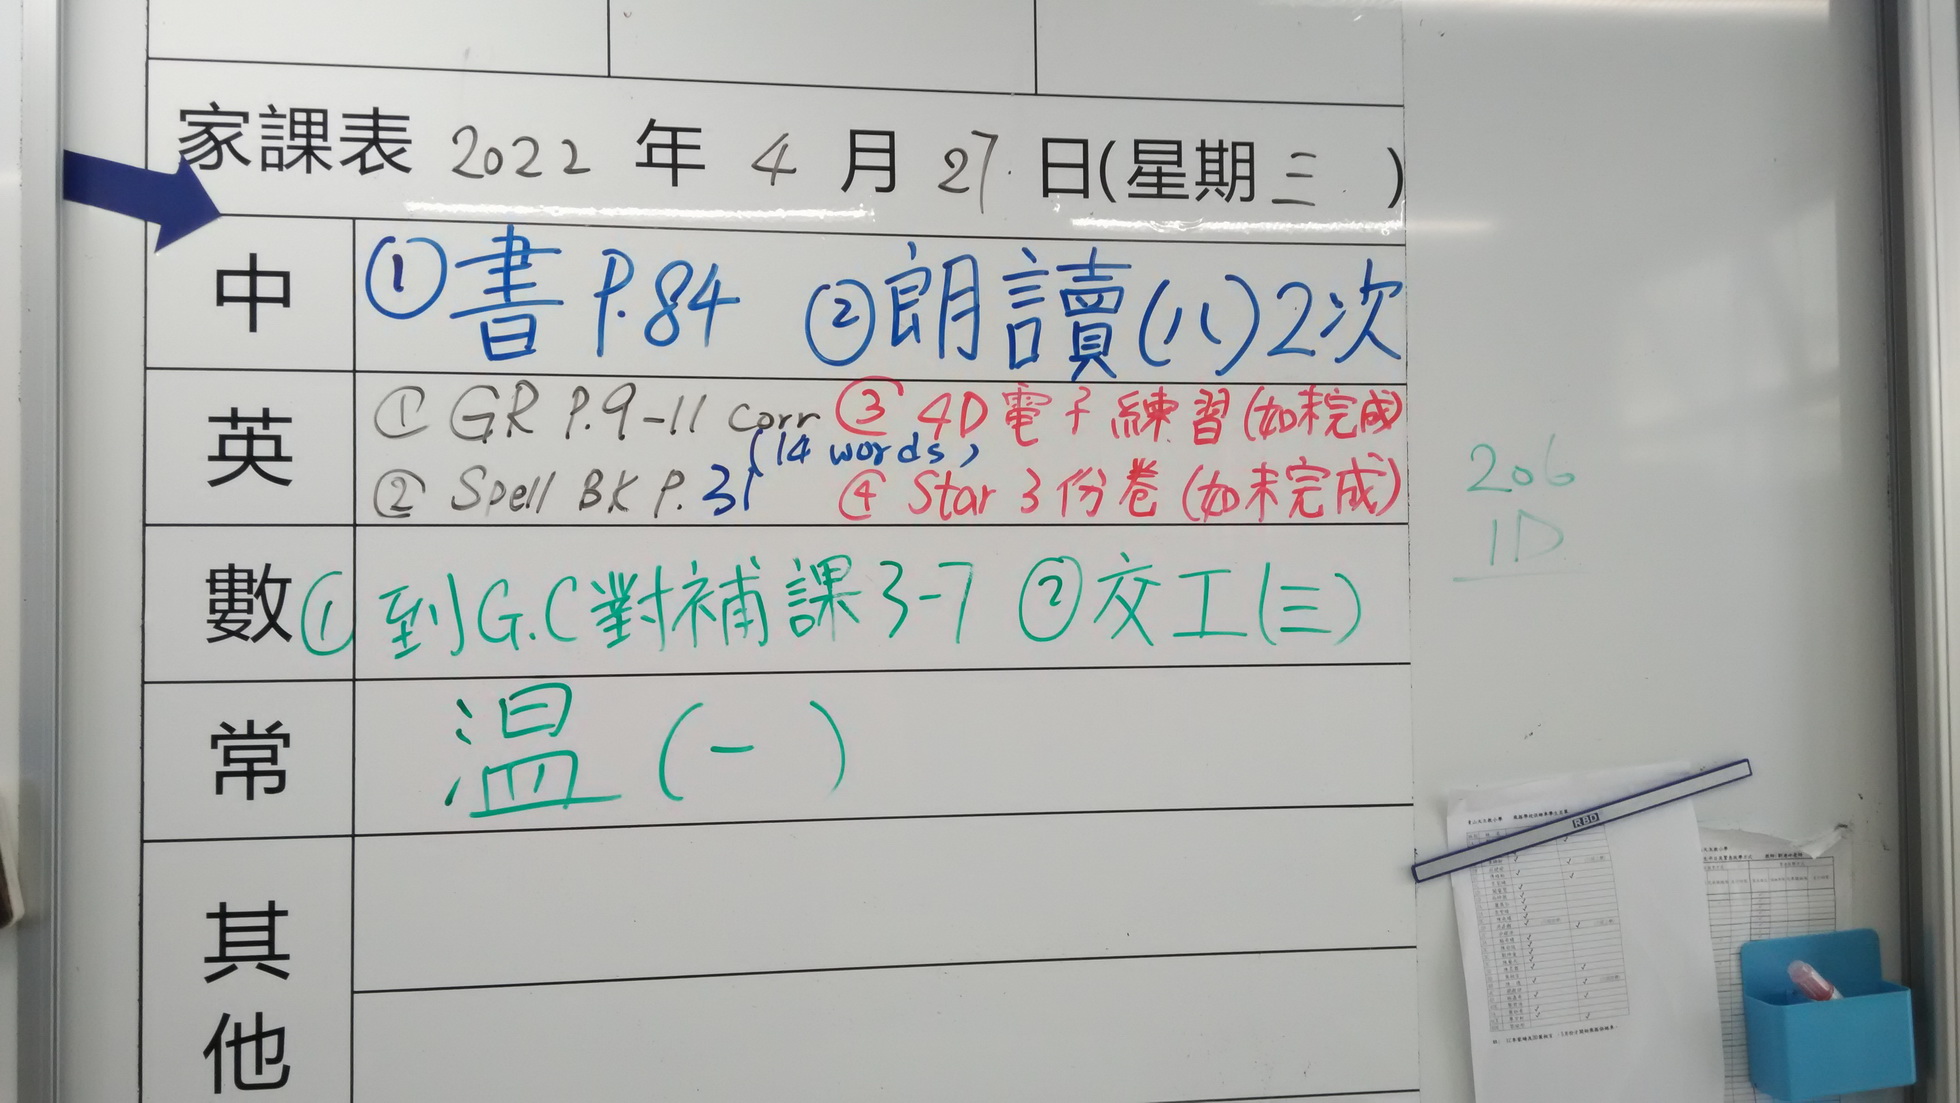 家課表 2022 年 4 月 27 日(星期三)
中 ①書 P.84 ②朗讀(八)2次
英 ① GR P.9-11 corr ③ 4D 電子練習(如未完成)
(14 words)
② Spell BK P.31 ④ Star 3份卷(如未完成)
數 ① 到G.C對補課3-7 ②交工(三)
常 温(一)
其他
206
1D
RBD